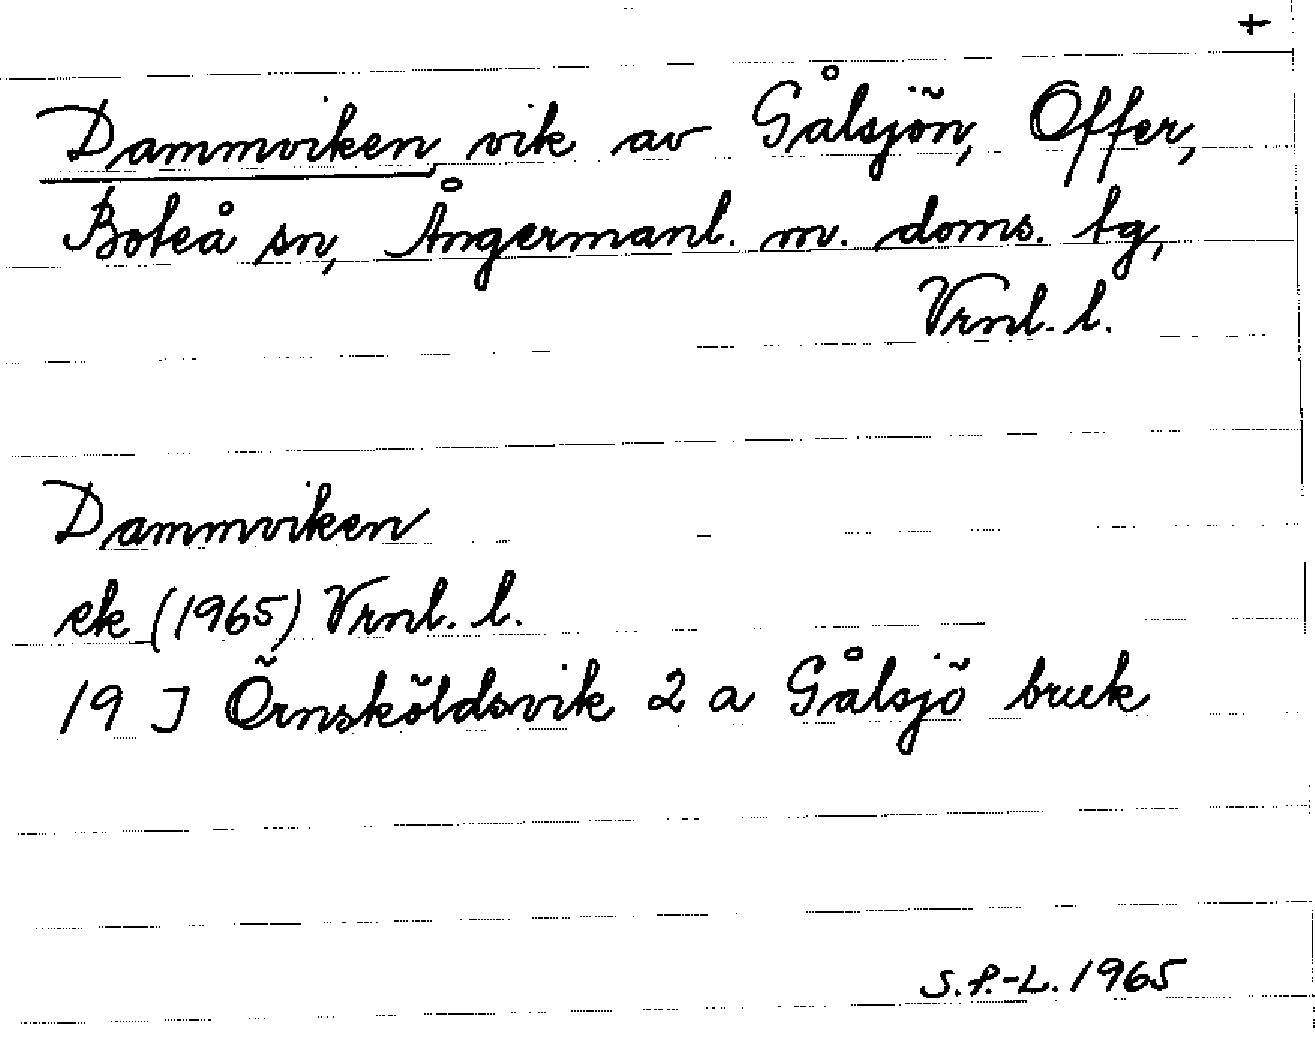 +
Dammviken, vik av Gålsjön, Offer,
Boteå sn, Ångermanl. m. doms. tg,
Vrnl. l.
Dammviken
ek (1965) Vrnl. l.
19 J Örnsköldsvik 2 a Gålsjö bruk
S.P.-L. 1965